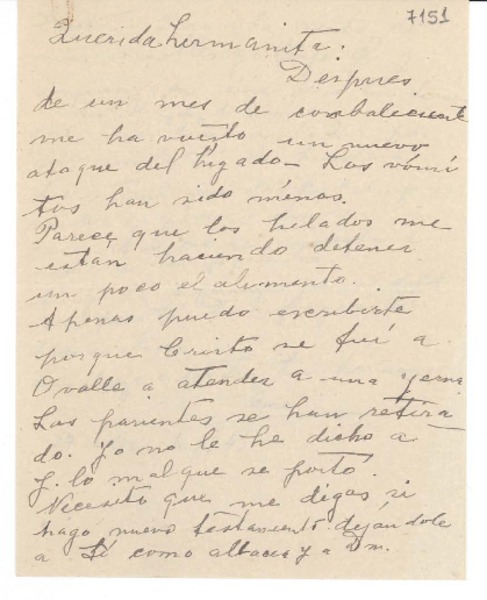 7151
Querida hermanita.
Despues
de un mes de combaleciente
me ha vuelto un nuevo
ataque del higado - Los vómi
tos han sido menos.
Parece que los helados me
están haciendo detener
un poco el alimento.
Apenas puedo escribirte
porque Cristo se fué a
Ovalle a atender a una yerna
Las parientes se han retira
do. Yo no le he dicho a
Y. lo mal que se portó.
Necesito que me digas si
hago nuevo testamento dejándole
a ti como albacea y a Dm.